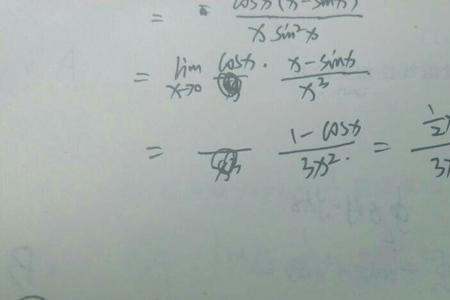 = cosx(x-sinx) / x sin²x
= lim x→0 cosx · x-sinx / x³
= 1-cosx / 3x² . = 1/2 x / 3x